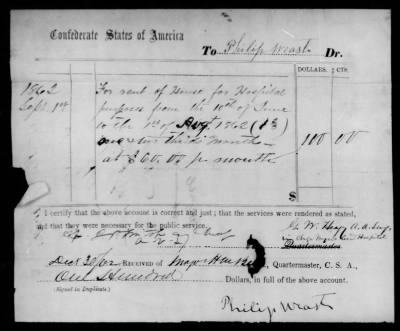 Confederate States of America
To Philip Weast Dr.
DOLLARS. CTS.
1862
Sept. 1st
For rent of House for Hospital
purposes from the 10th of June
to the 1st of Augt 1862 (1 2/3)
one & two thirds months
at $60.00 pr months 100 00
$
I certify that the above account is correct and just; that the services were rendered as stated,
and that they were necessary for the public service.
G. W. A. A. Surg.
in Chge Hospital
Quartermaster
Dec 20/62 RECEIVED of Major , Quartermaster, C. S. A.,
One Hundred Dollars, in full of the above account.
(Signed in Duplicate.)
Philip Weast